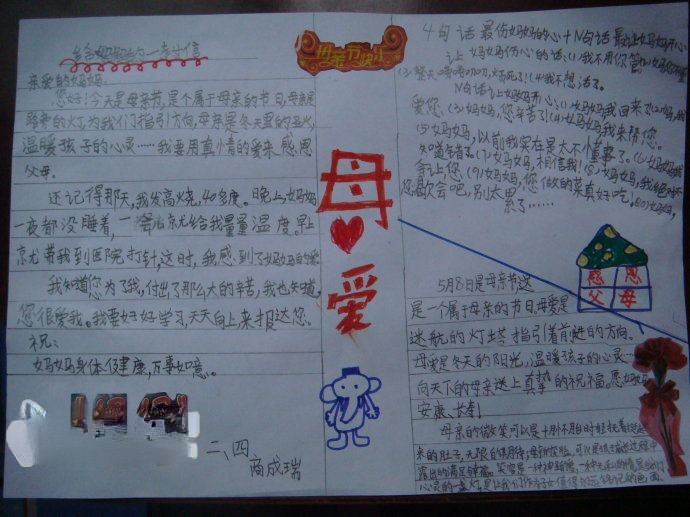 给妈妈的一封信
亲爱的妈妈:
您好!今天是母亲节,是个属于母亲的节日,母亲是
的灯,为我们指引方向,母亲是冬天里的阳光,
温暖孩子的心灵……我要用真情的爱来感恩
父母。
还记得那天,我发高烧,40多度。晚上,妈妈
一夜都没睡着,一会儿就给我量量温度。早上
京尤带我到医院打针,这时,我感到了妈妈的爱
我知道您为了我,付出了那么大的辛苦,我也知道,
您很爱我。我要好好学习,天天向上,来报达您。
祝:
妈妈身体健康,万事如意。
二、四
商成瑞
母亲节快乐
母
爱
4句话最伤妈妈的心+N句话最让妈妈开心
让妈妈伤心的话:(1)我不用你管
(4)我不想活了。
N句话让妈妈开心:(1)妈妈我回来了(2)妈妈,我
爱您。(3)妈妈,您辛苦了!(4)妈妈,我来帮您。
(5)妈妈,以前我实在是太不懂事了。(6)妈妈我
知道错了。(7)妈妈,相信我!(8)妈妈,我
让您(9)妈妈,您做的菜真好吃。(10)妈妈,
您歇会吧,别太累
了……
感恩
父母
5月8日是母亲节,这
是一个属于母亲的节日,母爱是
迷航的灯塔指引着前进的方向。
母爱是冬天的阳光,温暖孩子的心灵…
向天下的母亲送上真挚的祝福。愿妈妈
安康、长寿!
母亲的微笑可以是十月怀胎时轻抚着
来的肚子,无限
心灵的一盏灯,